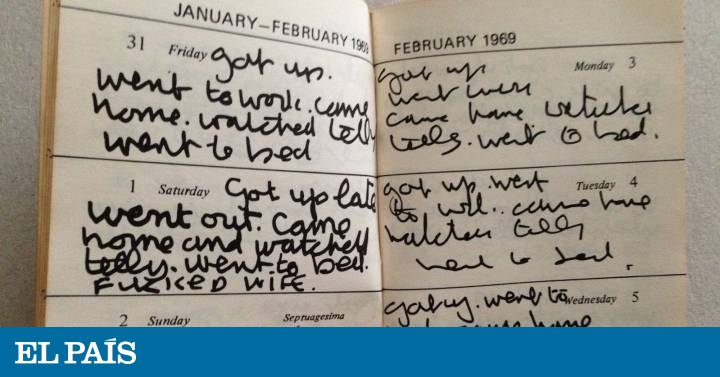 JANUARY–FEBRUARY 1969
31 Friday got up.
went to work. came
home. watched telly
went to bed
1 Saturday Got up late
went out. Came
home and watched
telly. went to bed.
FUCKED WIFE.
2 Sunday Septuagesima
FEBRUARY 1969
got up Monday 3
went work
came home. watched
telly. went to bed.
got up. went Tuesday 4
to work. came home
watched telly
went to bed.
got up. went to Wednesday 5
came home
EL PAÍS